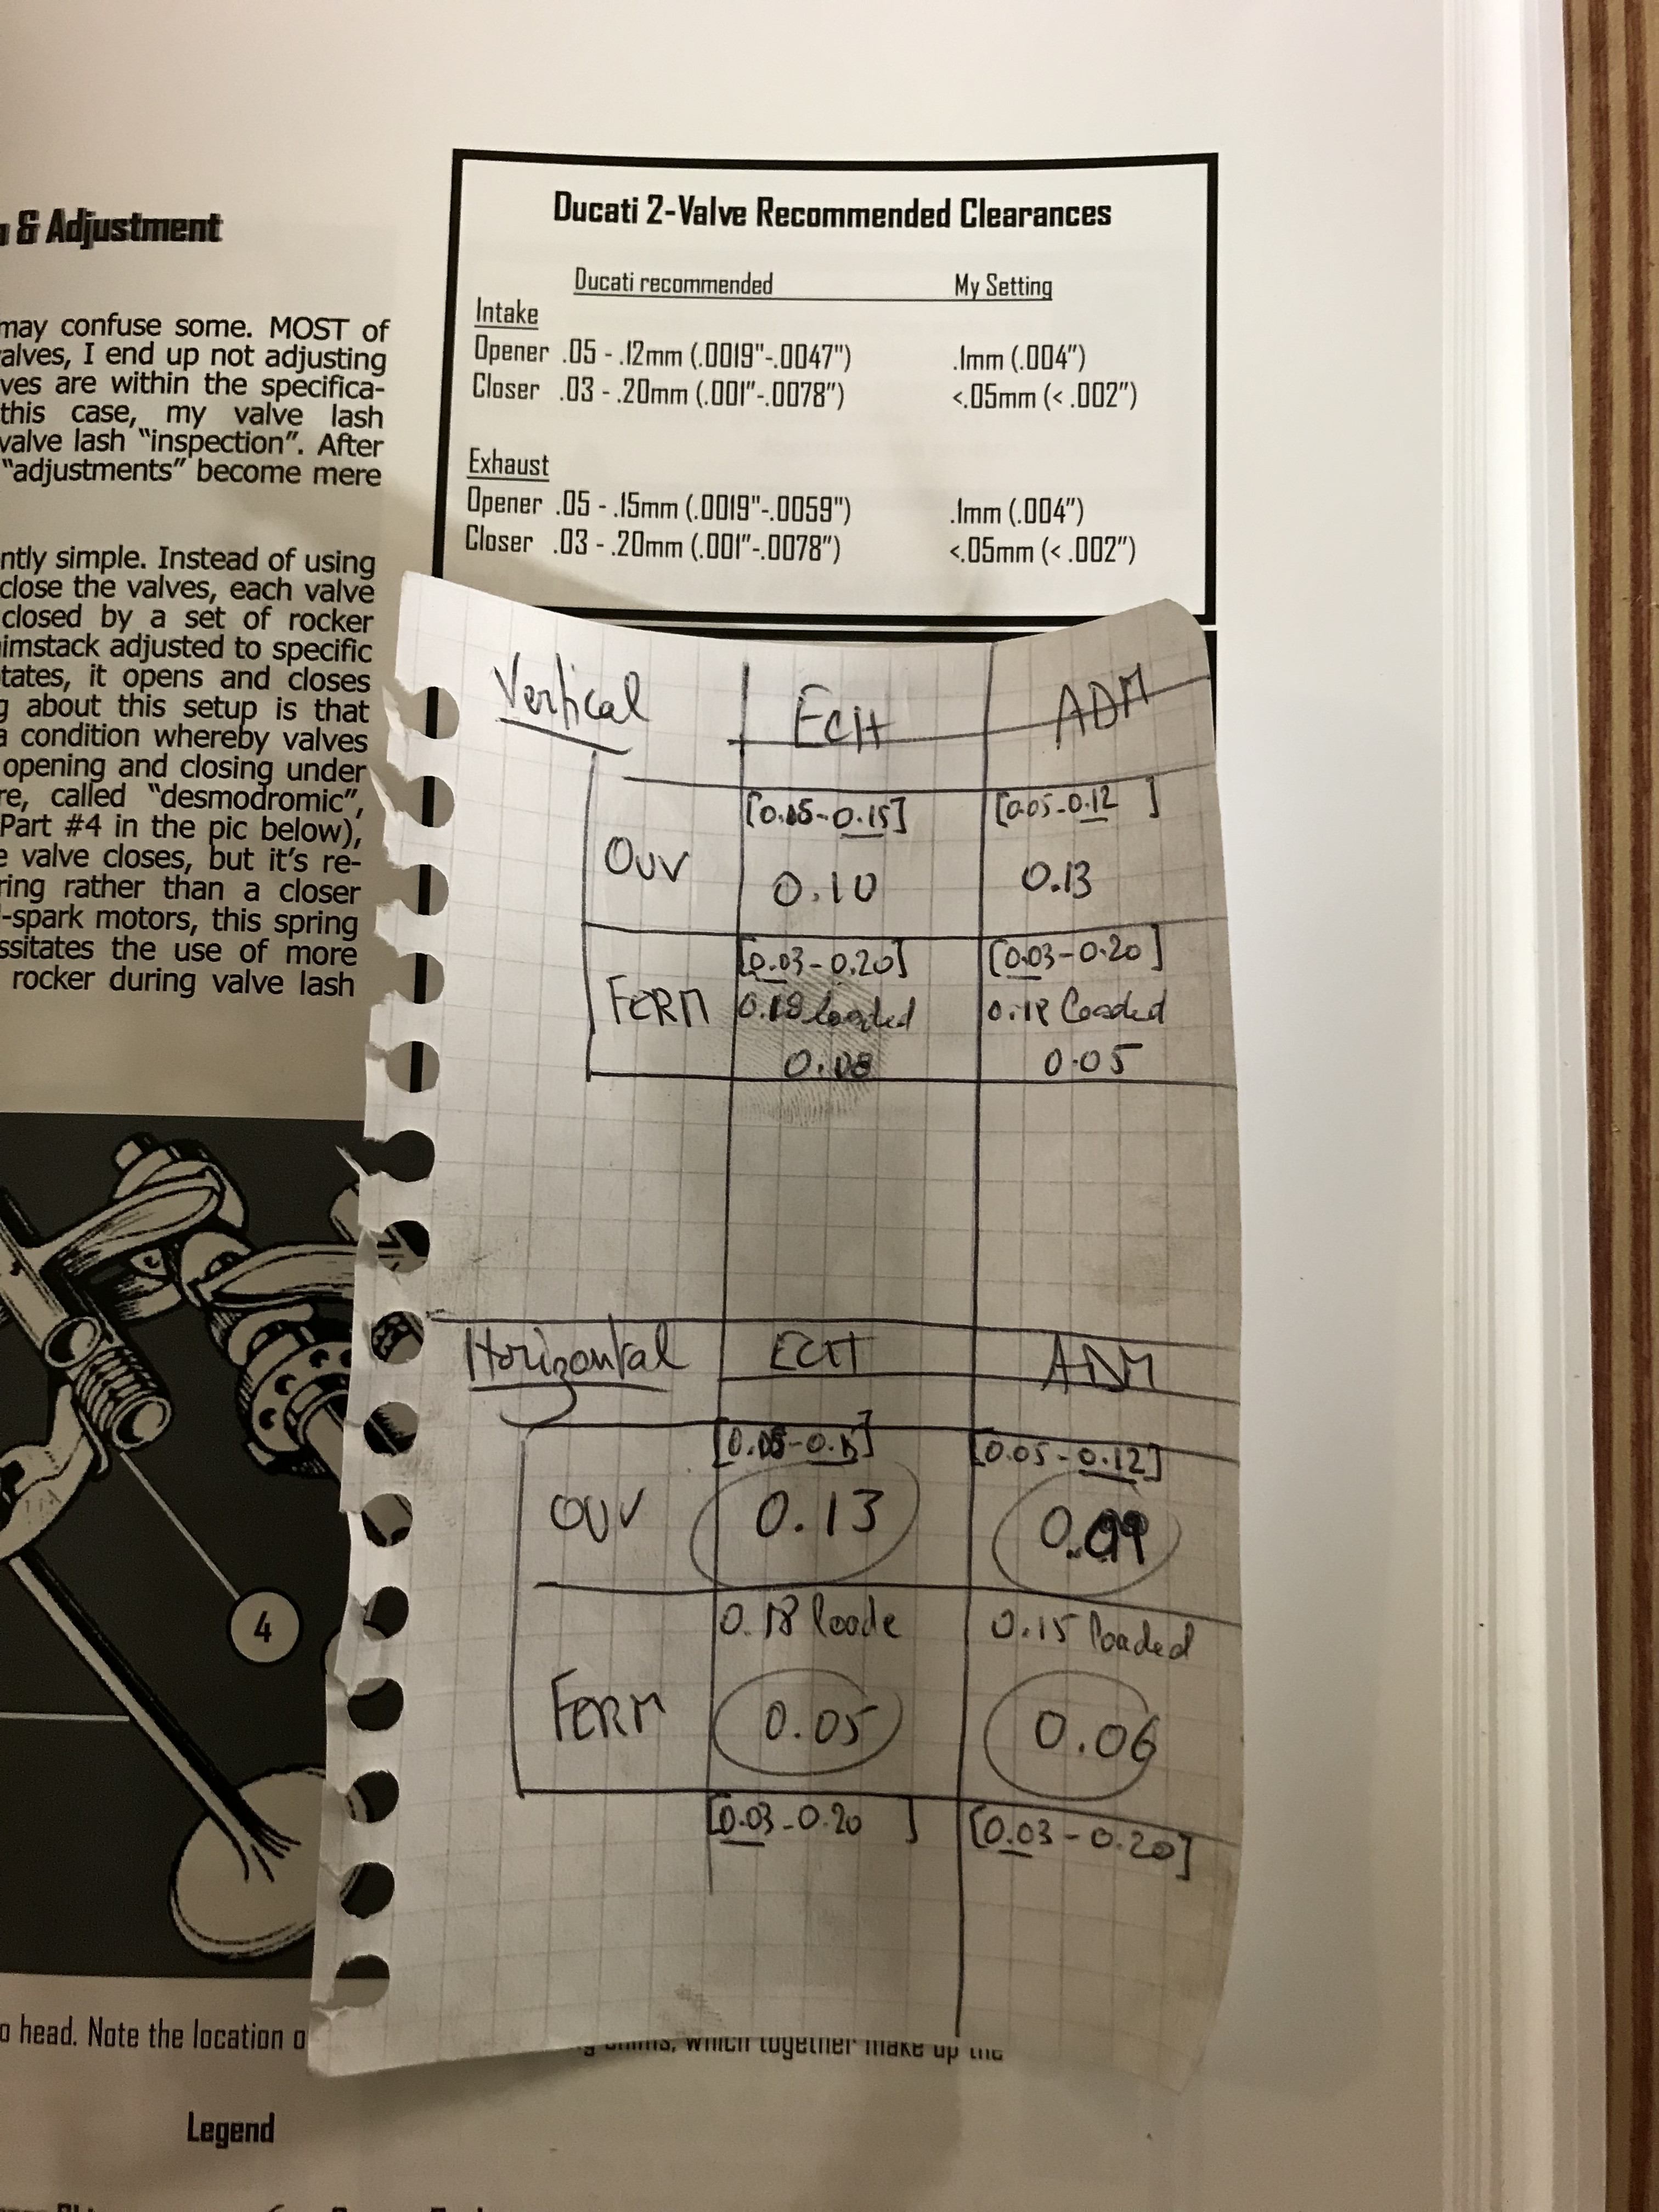 & Adjustment
may confuse some. MOST of
alves, I end up not adjusting
ves are within the specifica-
this case, my valve lash
valve lash “inspection”. After
“adjustments” become mere
ntly simple. Instead of using
close the valves, each valve
closed by a set of rocker
imstack adjusted to specific
tates, it opens and closes
g about this setup is that
a condition whereby valves
opening and closing under
re, called “desmodromic”,
Part #4 in the pic below),
e valve closes, but it’s re-
ring rather than a closer
-spark motors, this spring
ssitates the use of more
rocker during valve lash
Ducati 2-Valve Recommended Clearances
Ducati recommended My Setting
Intake
Opener .05 - .12mm (.0019"-.0047") .1mm (.004")
Closer .03 - .20mm (.001"-.0078") <.05mm (< .002")
Exhaust
Opener .05 - .15mm (.0019"-.0059") .1mm (.004")
Closer .03 - .20mm (.001"-.0078") <.05mm (< .002")
Vertical ECH ADM
[0.05-0.15] [0.05-0.12]
OUV 0.10 0.13
[0.03-0.20] [0.03-0.20]
FERM 0.18 loaded 0.18 loaded
0.08 0.05
Horizontal ECH ADM
[0.05-0.15] [0.05-0.12]
OUV 0.13 0.09
0.18 loade 0.15 loaded
FERM 0.05 0.06
[0.03-0.20] [0.03-0.20]
4
o head. Note the location o
which together make up the
Legend